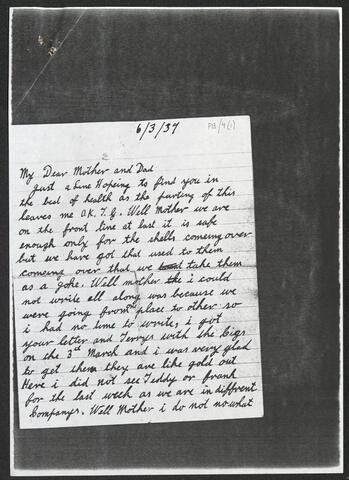 6/3/37 PB/4(1)
My Dear Mother and Dad
Just a line Hopeing to find you in
the best of health as the parting of this
leaves me O.K. T.G. Well Mother we are
on the front line at last it is safe
enough only for the shells comeing over
but we have got that used to them
comeing over that we take them
as a joke. Well mother the i could
not write all along was because we
were going from place to other so
i had no time to write, i got
your letter and Terrys with the Cigs
on the 3rd March and i was very glad
to get them they are like gold out
Here i did not see Teddy or frank
for the last week as we are in diffrent
Companys. Well Mother i do not no what